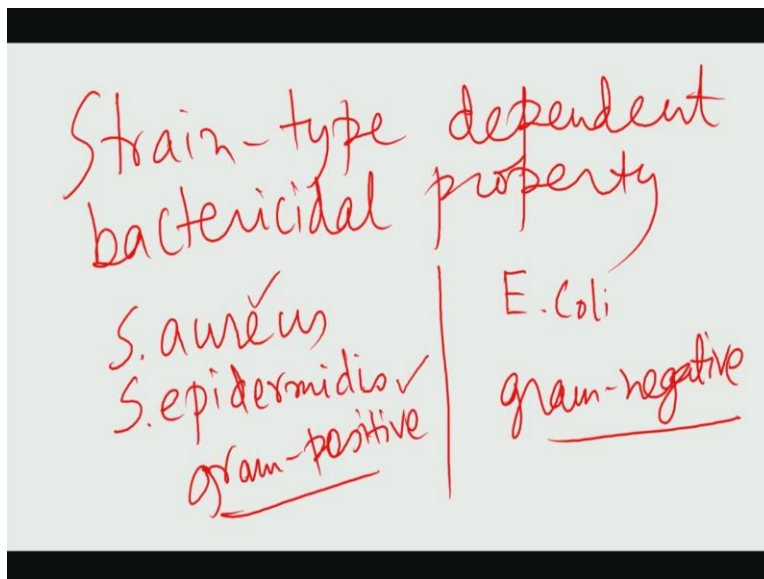 Strain-type dependent
bactericidal property
S. aureus
S. epidermidis
gram-positive
E. Coli
gram-negative